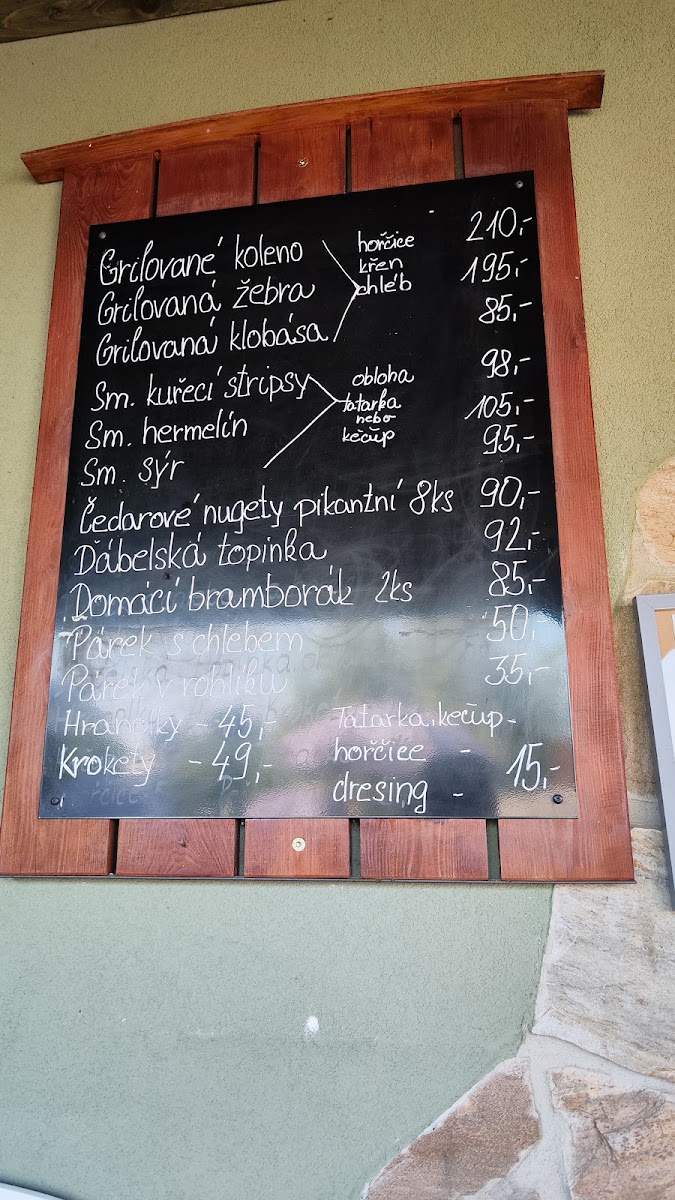 Grilované koleno 210,-
Grilovaná žebra 195,-
Grilovaná klobása 85,-
hořčice
křen
chléb
Sm. kuřecí stripsy 98,-
Sm. hermelín 105,-
Sm. sýr 95,-
obloha
tatarka
nebo
kečup
Čedarové nugety pikantní 8ks 90,-
Ďábelská topinka 92,-
Domácí bramborák 2ks 85,-
Párek s chlebem 50,-
Párek v rohlíku 35,-
Hranolky - 45,-
Krokety - 49,-
Tatarka, kečup -
hořčice -
dresing - 15,-